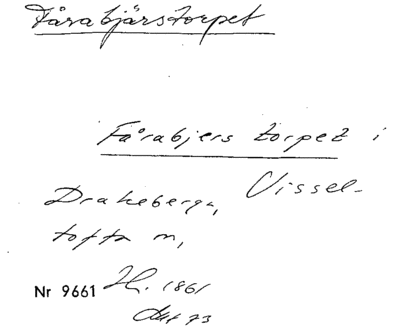 Fårabjärstorpet
Fårabjers torpet i
Drakeberga, Vissel-
tofta m,
Nr 9661 Hl. 1861
73